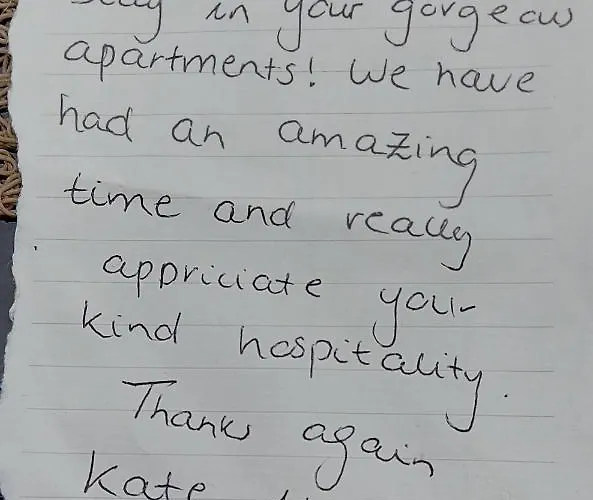 stay in your gorgeous
apartments! We have
had an amazing
time and really
appriciate your
kind hospitality.
Thanks again
Kate